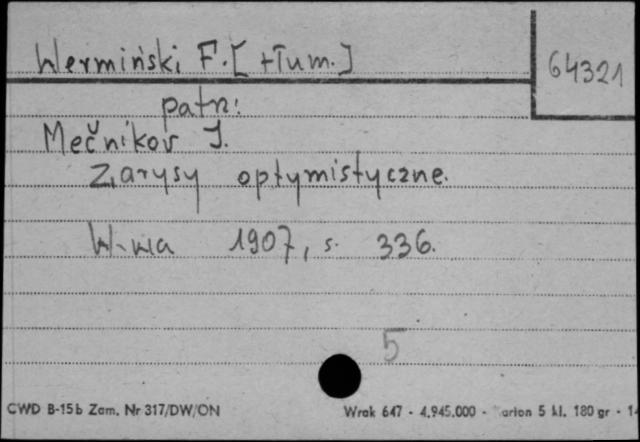 Wermiński F. [tłum.]
64321
patrz:
Mečnikov I.
Zarysy optymistyczne.
W-wa 1907, s. 336.
5
CWD B-15b Zam. Nr 317/DW/ON
Wrak 647 - 4.945.000 - arton 5 kl. 180 gr - 14